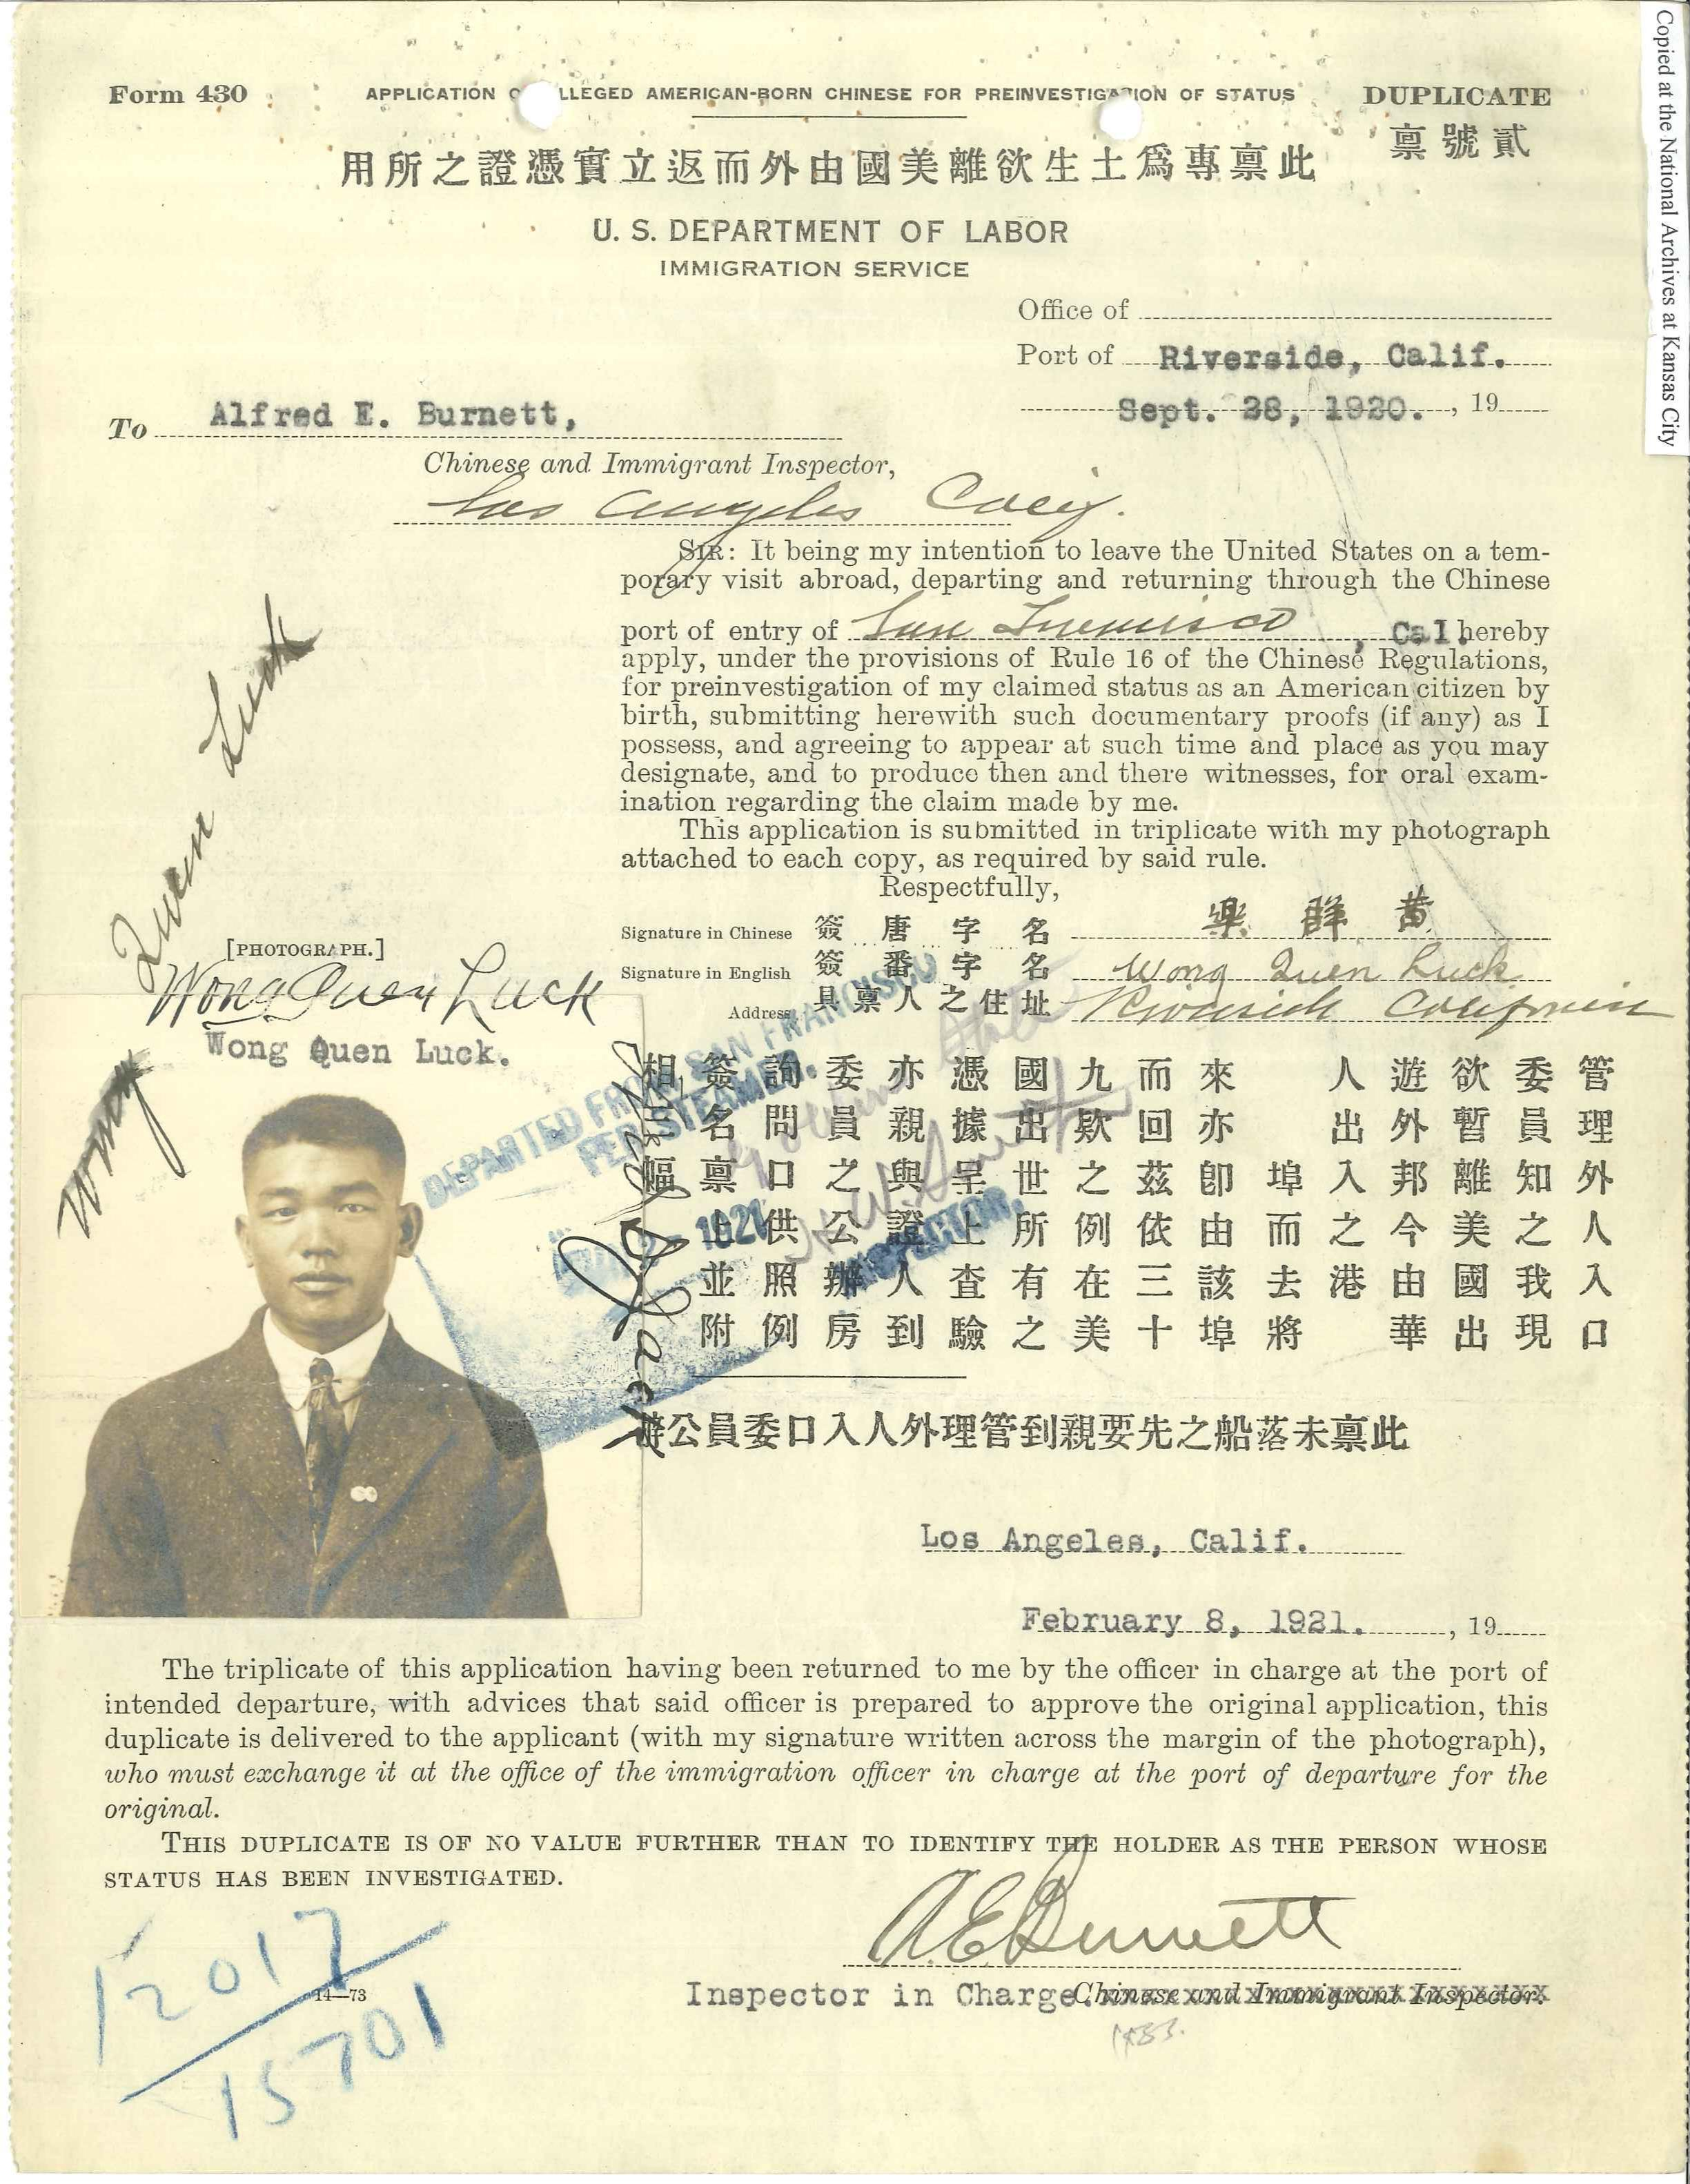 Copied at the National Archives at Kansas City
Form 430
APPLICATION OF ALLEGED AMERICAN-BORN CHINESE FOR PREINVESTIGATION OF STATUS
DUPLICATE
貳號稟
此稟專爲土生欲離美國由外而返立實憑證之所用
U. S. DEPARTMENT OF LABOR
IMMIGRATION SERVICE
Office of
Port of Riverside, Calif.
Sept. 28, 1920. , 19
To Alfred E. Burnett,
Chinese and Immigrant Inspector,
Los Angeles Calif.
SIR: It being my intention to leave the United States on a tem-
porary visit abroad, departing and returning through the Chinese
port of entry of San Francisco, Cal. hereby
apply, under the provisions of Rule 16 of the Chinese Regulations,
for preinvestigation of my claimed status as an American citizen by
birth, submitting herewith such documentary proofs (if any) as I
possess, and agreeing to appear at such time and place as you may
designate, and to produce then and there witnesses, for oral exam-
ination regarding the claim made by me.
This application is submitted in triplicate with my photograph
attached to each copy, as required by said rule.
Respectfully,
Signature in Chinese 簽唐字名 黄群樂
Signature in English 簽番字名 Wong Quen Luck
Address 具稟人之住址 Riverside California
[PHOTOGRAPH.]
Wong Quen Luck
Wong Quen Luck
Wong Quen Luck.
DEPARTED FROM SAN FRANCISCO
PER STEAMER.
1921
INSPECTOR.
管理外人入口
委員知之我現
欲暫離美國出
遊外邦今由華
人出入之港
埠而去將
來亦卽由該埠
而回茲依三十
九欵之例在美
國出世所有之
憑據呈上查驗
亦親與證人到
委員之公辦房
詢問口供照例
簽名稟上並附
相三幅
此稟未落船之先要親到管理外人入口委員公辦
Los Angeles, Calif.
February 8, 1921. , 19
The triplicate of this application having been returned to me by the officer in charge at the port of
intended departure, with advices that said officer is prepared to approve the original application, this
duplicate is delivered to the applicant (with my signature written across the margin of the photograph),
who must exchange it at the office of the immigration officer in charge at the port of departure for the
original.
THIS DUPLICATE IS OF NO VALUE FURTHER THAN TO IDENTIFY THE HOLDER AS THE PERSON WHOSE
STATUS HAS BEEN INVESTIGATED.
A. E. Burnett
Inspector in Charge. Chinese and Immigrant Inspector.
14—73
12017
15701